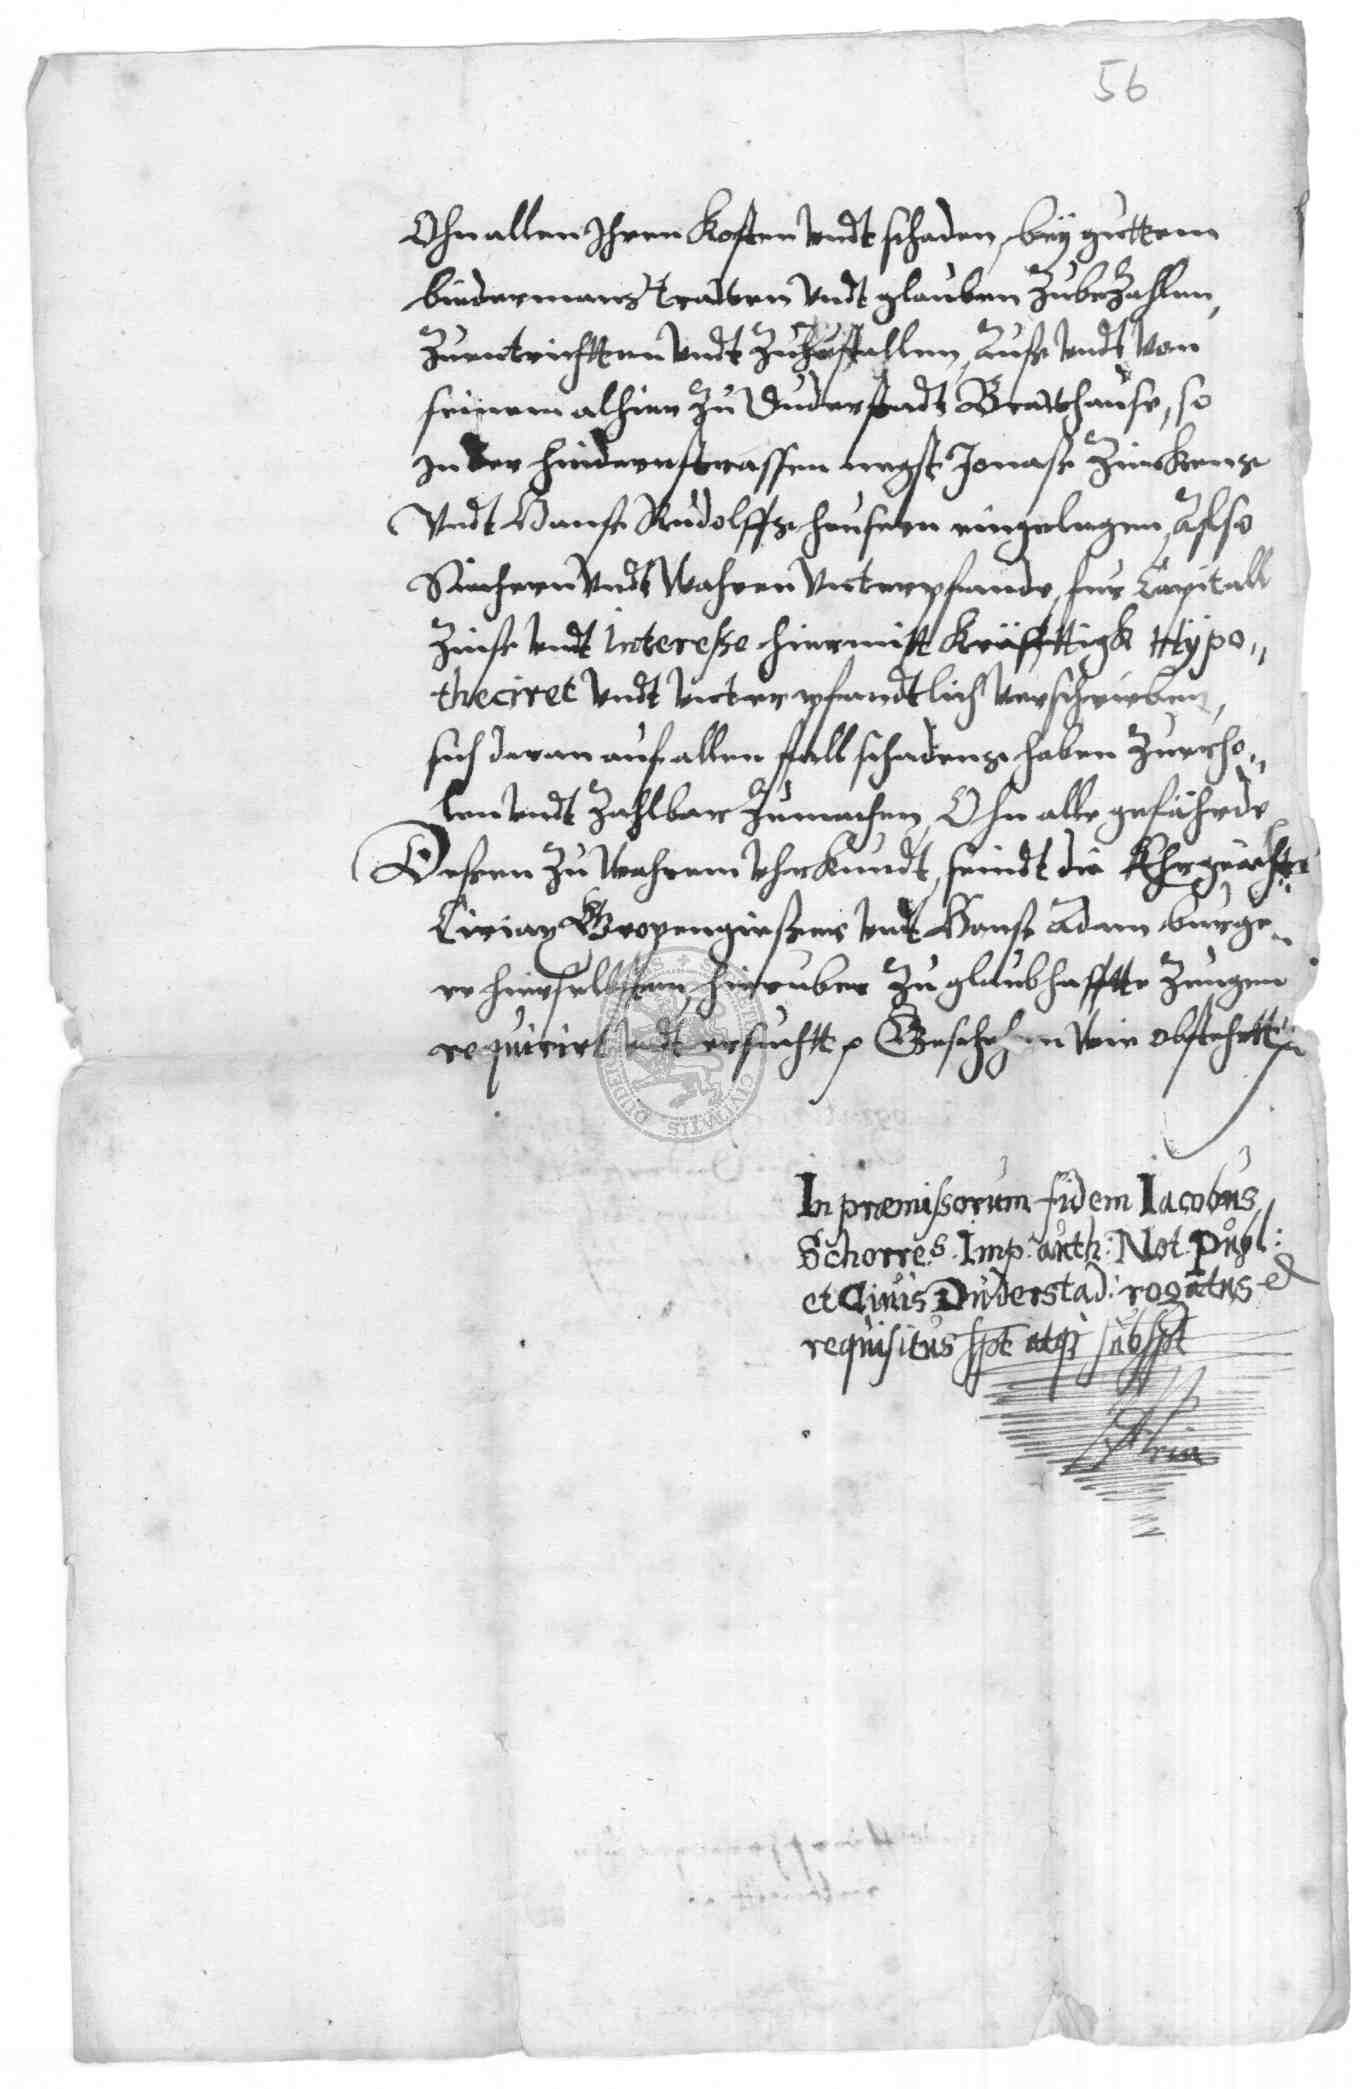 56
Ohn allen Ihren Kosten vndt schaden, bey guttem
biedermans trawen vndt glauben Zubezahlen,
Zuentrichtten vndt Zuzustellen, Auß vndt von
seinem alhier Zu Duderstadt Brawhause, so
In der hinderstrassen negst Jonaß Zinckens
Vndt Hanß Rudolffs heusern eingelegen, Alß
Sichern vndt Wahren vnterpfande, fur Capitall
Zinse vndt Interesse hiermitt Kräfftigk Hypo„
theciret vndt vnterpfandtlich verschrieben,
sich daran auf allen fall schadens haben Zuerho„
len vndt Zahlbar Zumachen, Ohn alle gefährde
Deßen Zu wahrem Vhrkundt, seindt die
Ciriax Gropengießer vndt Hanß Adam burge„
re hieselbsten, hieruber Zu glaubhafftte Zeugen
requirirt vndt ersuchtt Geschehen wie obstehett
In præmissorum fidem Iacobus
Schorres Imp: auth: Not. Publ:
et Civis Duderstad: rogatus et
requisitus spt atq subspt
DUDER CIVITATIS